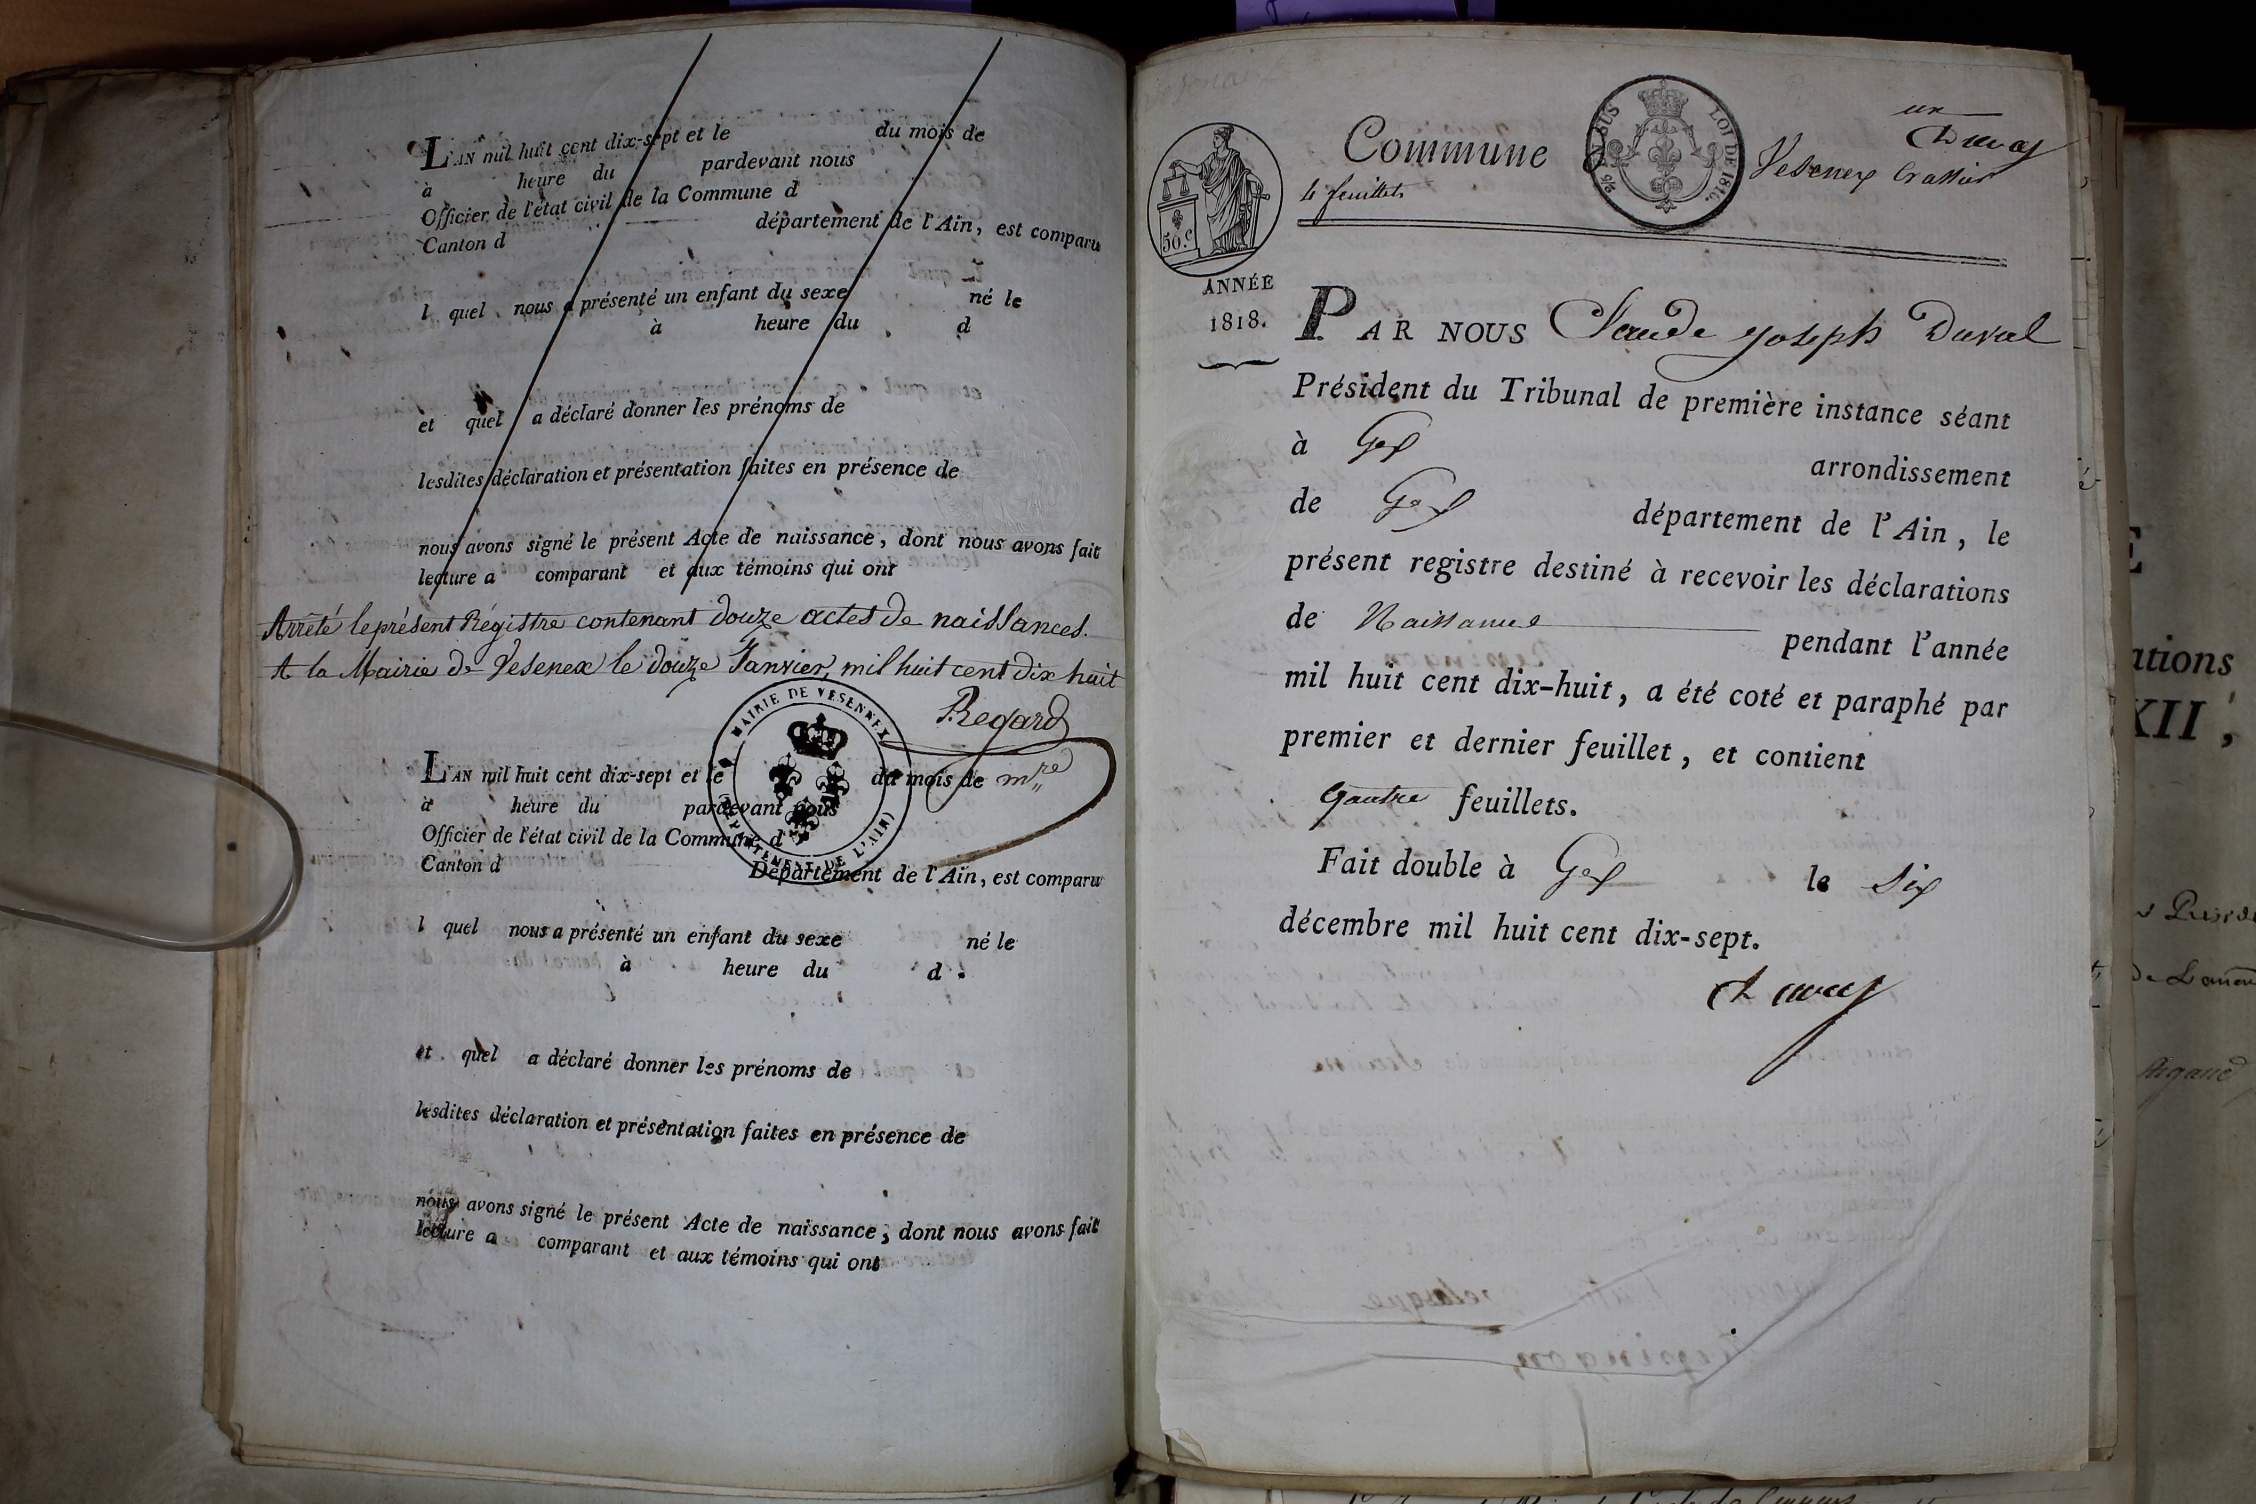 L'AN mil huit cent dix-sept et le du mois de
à heure du pardevant nous
Officier de l'état civil de la Commune d
Canton d département de l'Ain, est comparu
l quel nous a présenté un enfant du sexe né le
à heure du d
et quel a déclaré donner les prénoms de
lesdites déclaration et présentation faites en présence de
nous avons signé le présent Acte de naissance, dont nous avons fait
lecture a comparant et aux témoins qui ont
Arrêté le présent Régistre contenant douze actes de naissances.
A la Mairie de Vesenex le douze Janvier, mil huit cent dix huit
Regard
MAIRIE DE VESENNEX
(DÉPARTEMENT DE L'AIN)
L'AN mil huit cent dix-sept et le du mois de mre
à heure du pardevant nous
Officier de l'état civil de la Commune d
Canton d Département de l'Ain, est comparu
l quel nous a présenté un enfant du sexe né le
à heure du d
et quel a déclaré donner les prénoms de
lesdites déclaration et présentation faites en présence de
nous avons signé le présent Acte de naissance, dont nous avons fait
lecture a comparant et aux témoins qui ont
un
Duval
Commune Vesenex Crassier
EN SUS LOI DE 1816.
4 feuillets
50.c
ANNÉE
1818.
PAR NOUS Claude Joseph Duval
Président du Tribunal de première instance séant
à Gex arrondissement
de Gex département de l'Ain, le
présent registre destiné à recevoir les déclarations
de Naissance pendant l'année
mil huit cent dix-huit, a été coté et paraphé par
premier et dernier feuillet, et contient
quatre feuillets.
Fait double à Gex le six
décembre mil huit cent dix-sept.
Duval
ations
XII,